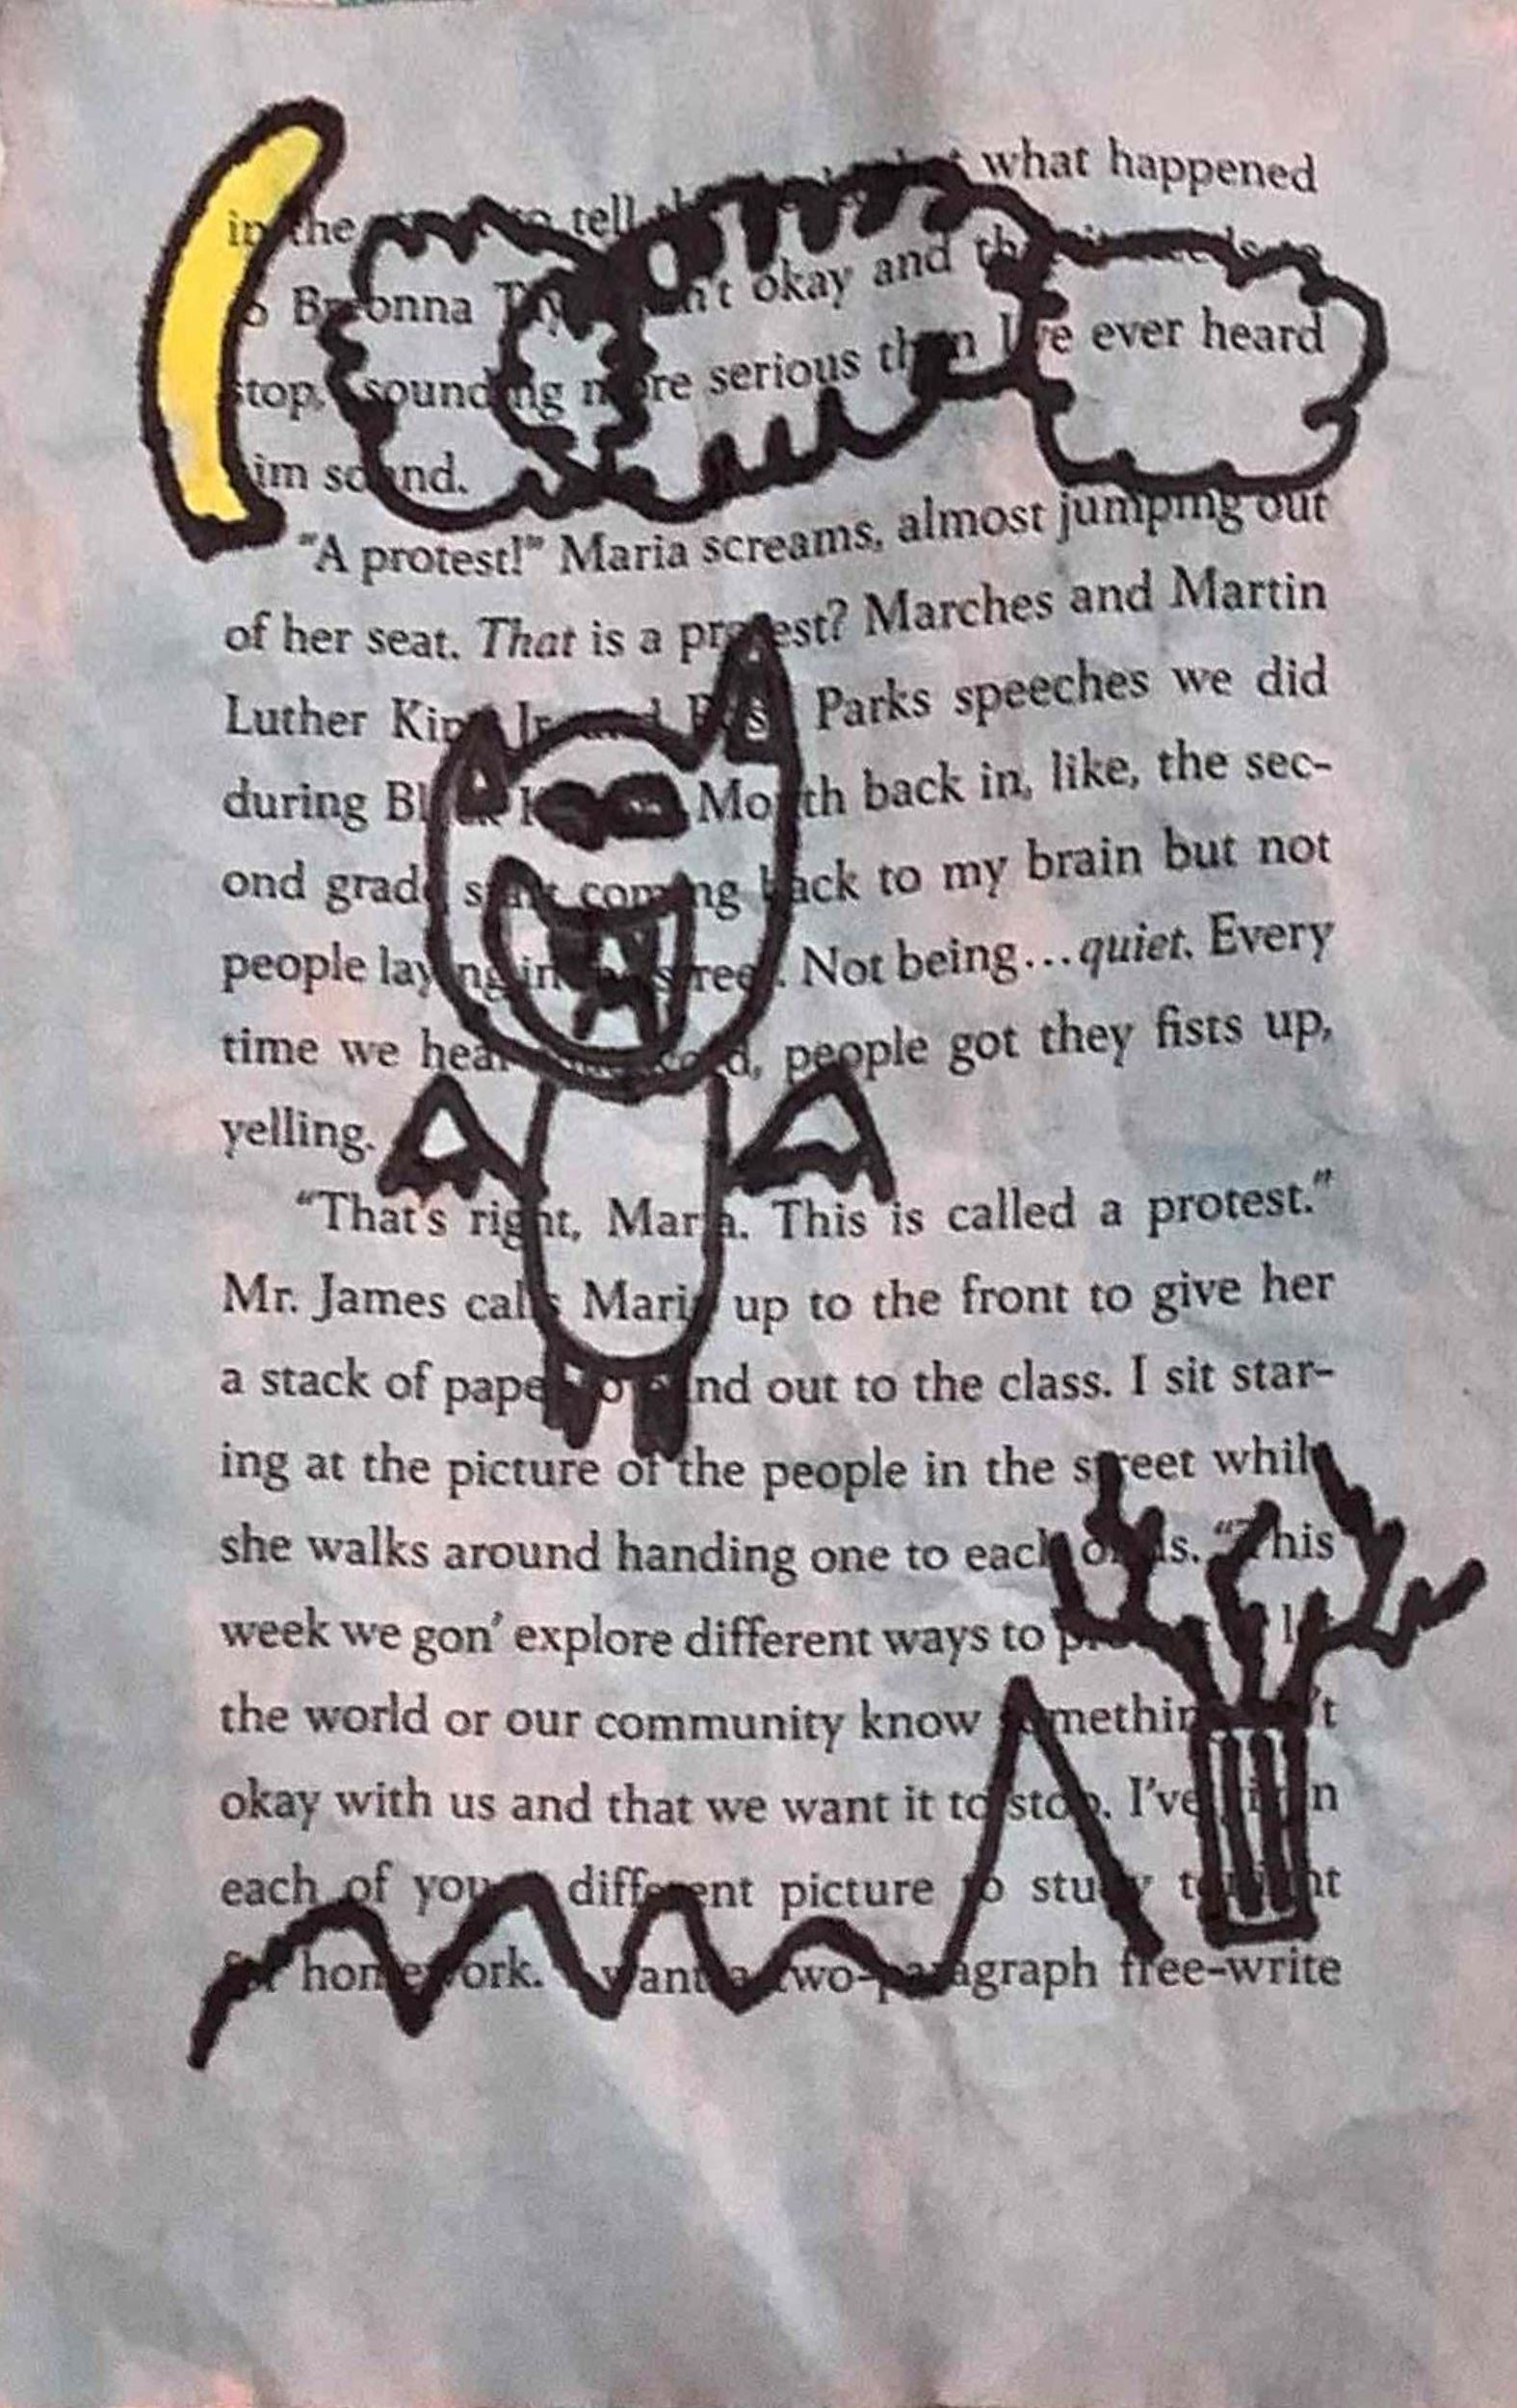 in the tell what happened
Breonna okay and
stop, sounding more serious than I've ever heard
him sound.
"A protest!" Maria screams, almost jumping out
of her seat. That is a protest? Marches and Martin
Luther King Jr. and Rosa Parks speeches we did
during Black Month back in, like, the sec-
ond grade start coming back to my brain but not
people laying in street. Not being...quiet. Every
time we hear people got they fists up,
yelling.
"That's right, Maria. This is called a protest."
Mr. James calls Maria up to the front to give her
a stack of paper to hand out to the class. I sit star-
ing at the picture of the people in the street while
she walks around handing one to each of us. "This
week we gon' explore different ways to
the world or our community know something
okay with us and that we want it to stop. I've
each of you different picture to study tonight
for homework. I want a two-paragraph free-write